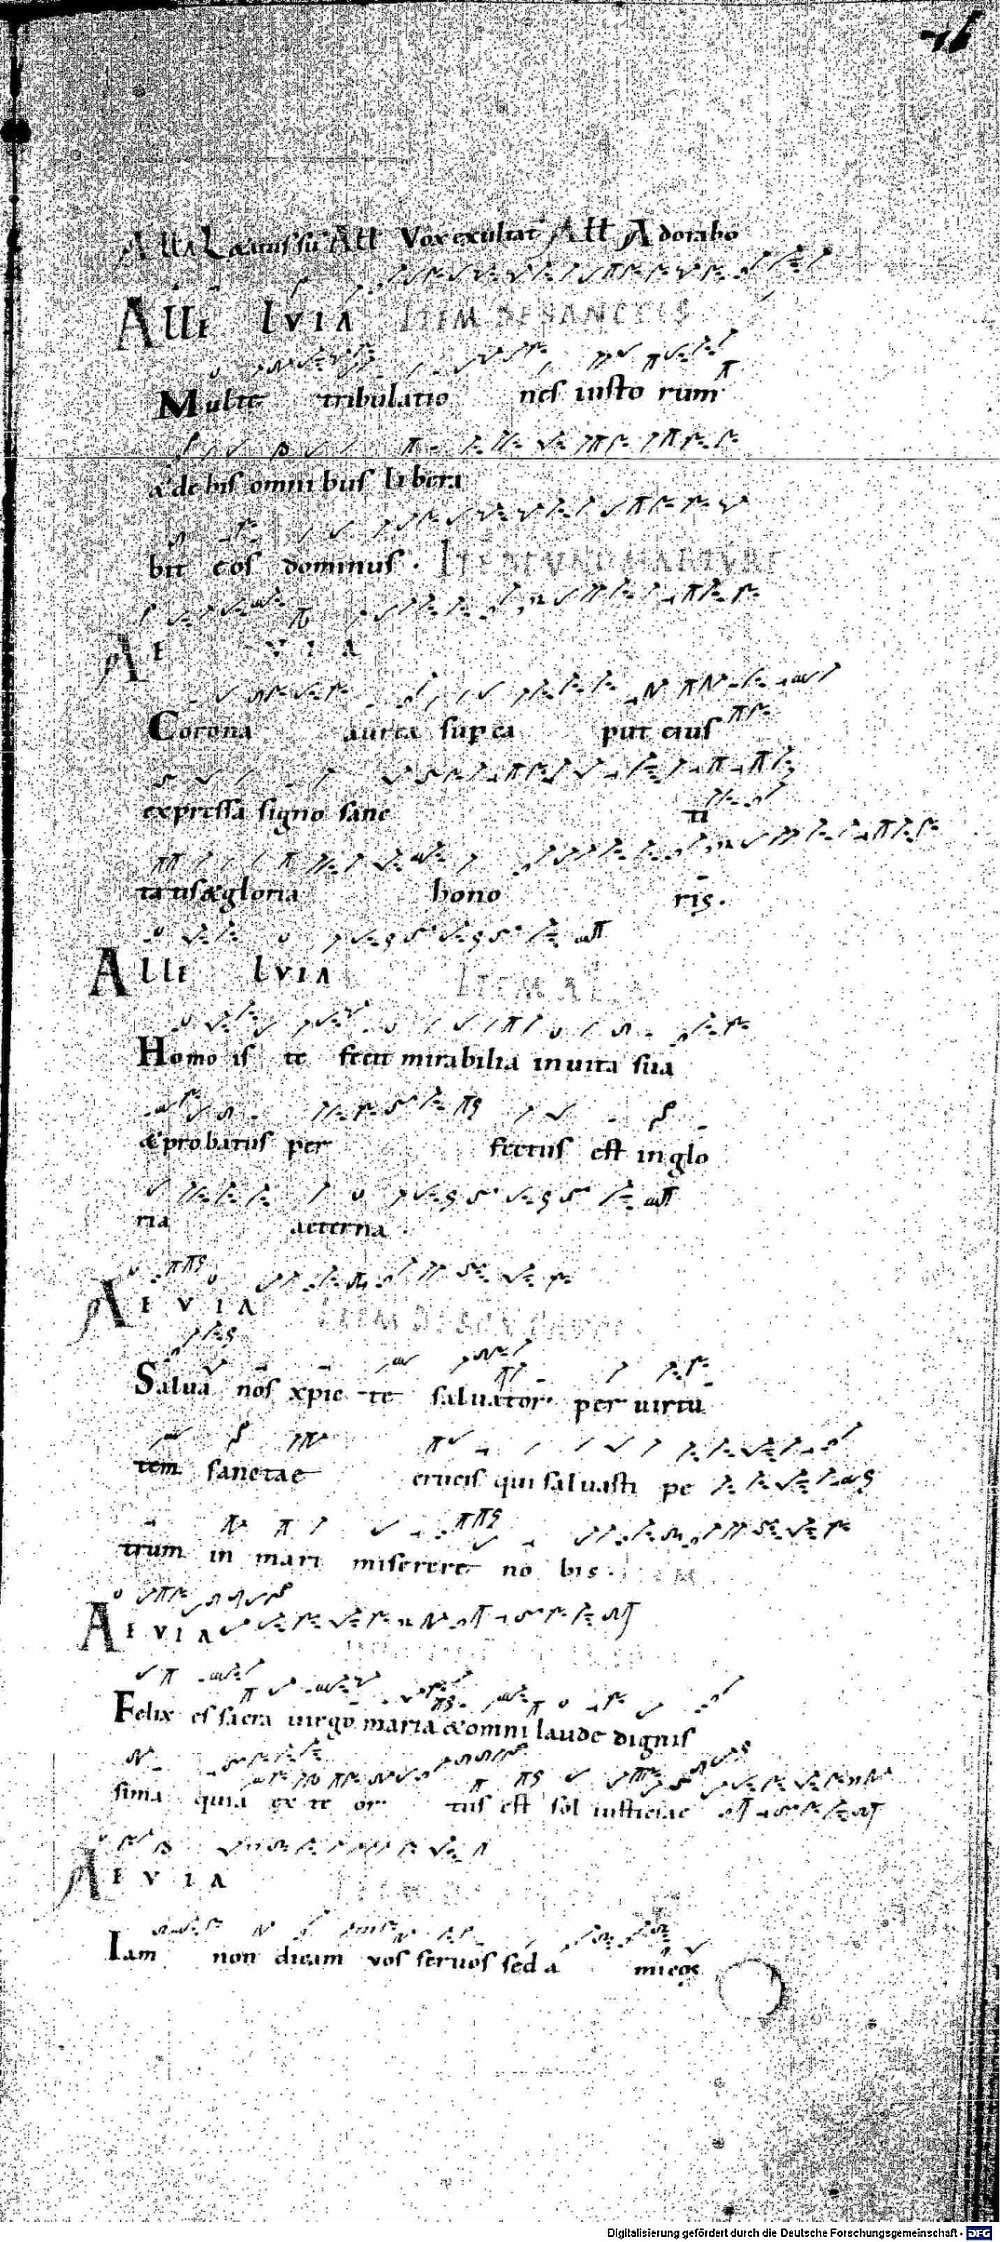 All Laetatus su All Vox exultat All Adorabo
Alle luia ITEM DE SANCTIS
Multe tribulatio nes iusto rum
& de his omnibus libera
bit eos dominus. ITE DE
AE V I A
Corona aurea sup ca put eius
expressa signo sanc ti
tatis & gloria hono ris.
Alle luia ITEM ALIA
Homo is te fecit mirabilia in uita sua
& probatus per fectus est in glo
ria aeterna.
AE V I A ITEM DE
Salua nos xpie te saluator per uirtu
tem sanctae crucis qui saluasti pe
trum in mari miserere no bis. ITEM
AE V I A
Felix es sacra uirgo maria & omni laude dignis
sima quia ex te or tus est sol iusticiae
AE V I A ITEM
Iam non dicam vos seruos sed a micos
Digitalisierung gefördert durch die Deutsche Forschungsgemeinschaft - DFG